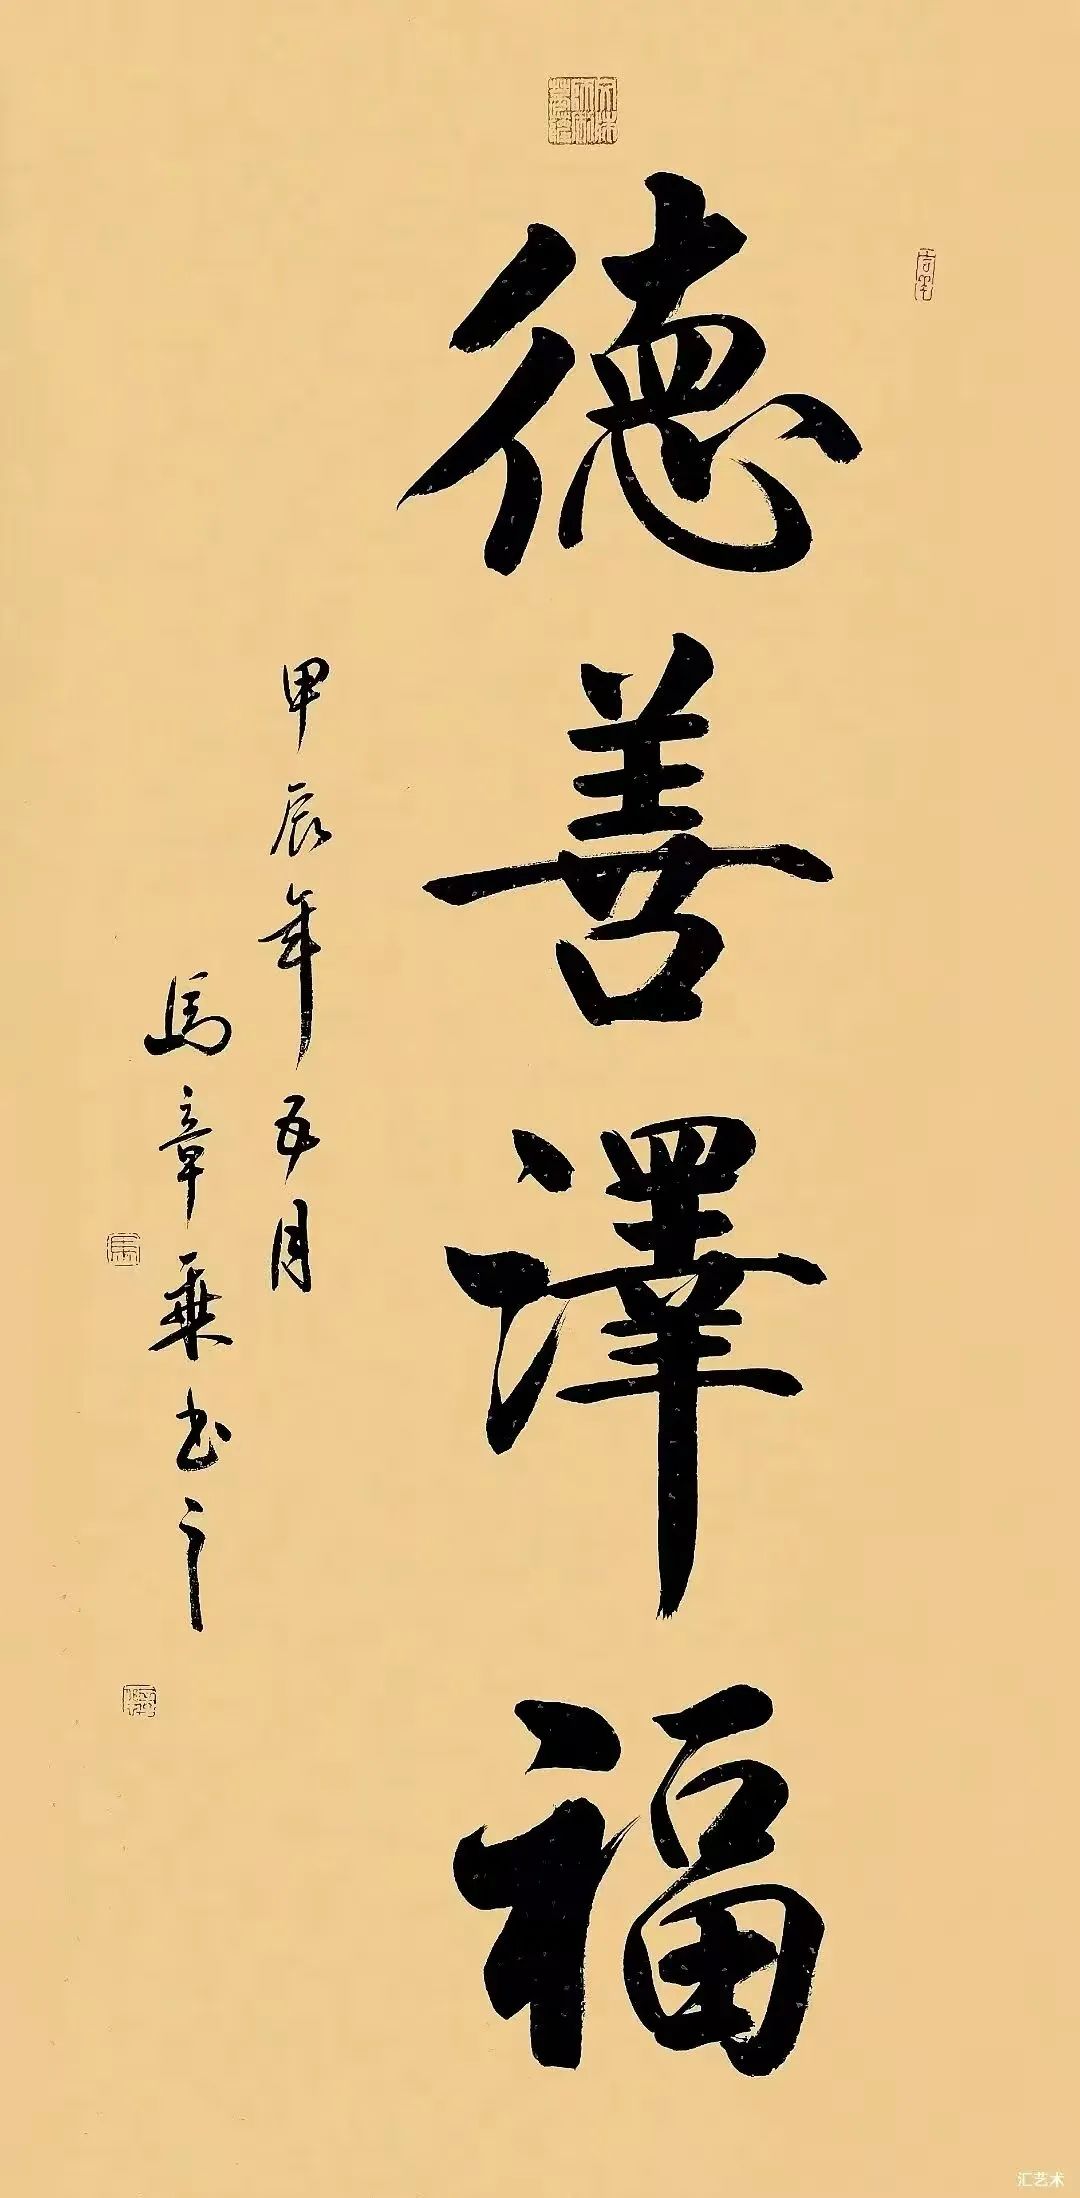 德善澤福
甲辰年五月
馬章乘书之
汇艺术